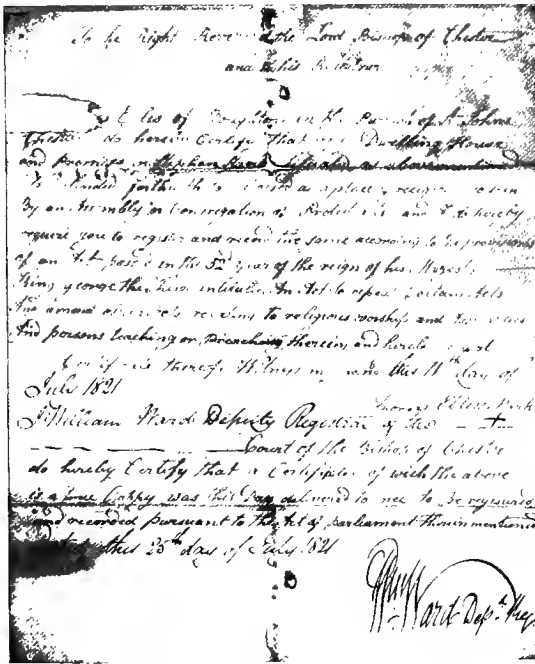 To the Right Reverend the Lord Bishop of Chester
and to his Registrar
Ellis of Boughton in the Parish of St Johns
Chester do herein Certify that my Dwelling House
and Premises in
is intended forthwith to be used as a place of religious
By an Assembly or Congregation of Protestants and I do hereby
require you to register and record the same according to the provisions
of an Act passed in the 52d year of the reign of his Majesty
King George the Third intitule An Act to repeal Certain Acts
and amend others relating to religious worship and
And persons teaching or Preaching therein and hereby
thereof Witness my this 11th day of
July 1821
Thomas Ellis's Mark
I William Ward Deputy Register of the
Court of the Bishop of Chester
do hereby Certify that a Certificate of with the above
is a true Coppy was this Day delivered to mee to Be registered
and recorded pursuant to the Act of parliament therein mentioned
this 25th day of July 1821
Wm Ward Depty Regr